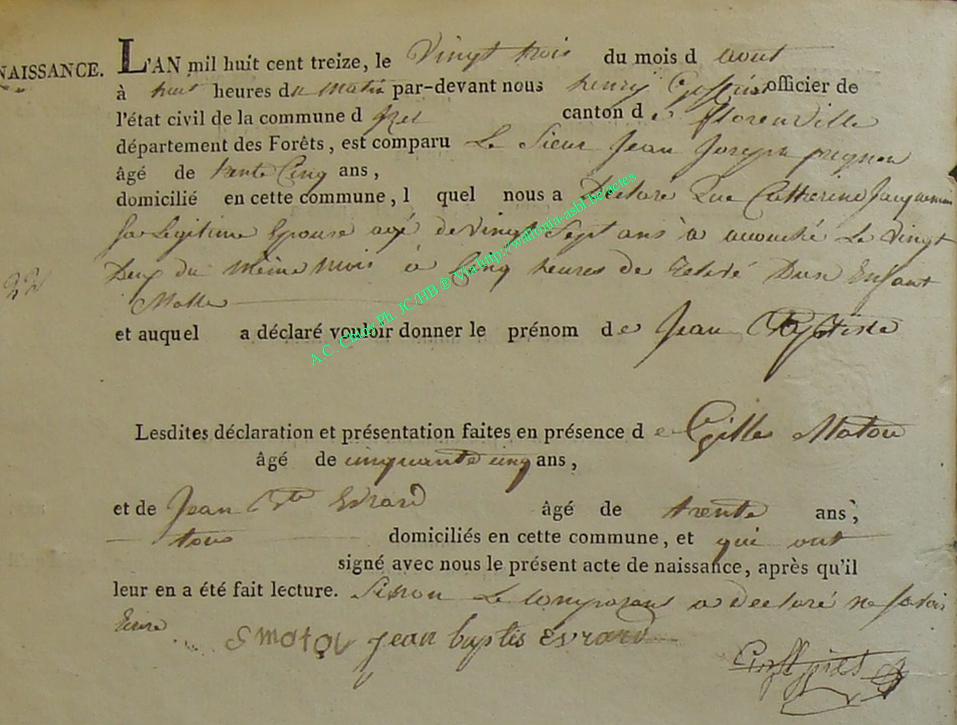 NAISSANCE. L'AN mil huit cent treize, le Vingt trois du mois d aout
à huit heures du Matin par-devant nous henry officier de
l'état civil de la commune d canton de florenville
département des Forêts, est comparu Le Sieur Jean Joseph pignon
âgé de trente Cinq ans,
domicilié en cette commune, l quel nous a Declare Que Catherine Jacquemin
Sa Legitime Epouse agé de Vingt Sept ans à accouché Le Vingt
Deux du Même Mois à Cinq heures de Relevé Dun Enfant
Malle
et auquel a déclaré vouloir donner le prénom de Jean Baptiste
Lesdites déclaration et présentation faites en présence de Gilles Maton
âgé de cinquante cinq ans,
et de Jean Bte Evrard âgé de trente ans,
tous domiciliés en cette commune, et qui ont
signé avec nous le présent acte de naissance, après qu'il
leur en a été fait lecture. Sinon Le Comparant a declaré ne savoir
Ecrire
jean baptis evrard
A.C. Ph. JC/HB @ Via http://wallonia-asbl.be/actes